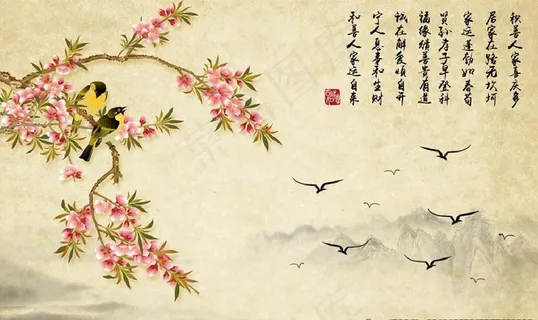 积善人家喜庆多
居家在路无坎坷
家运蓬勃如春笋
贤孙孝子早登科
福缘结善贵有道
诚在解爱顷自开
宁人息事和生财
和善人家运自来